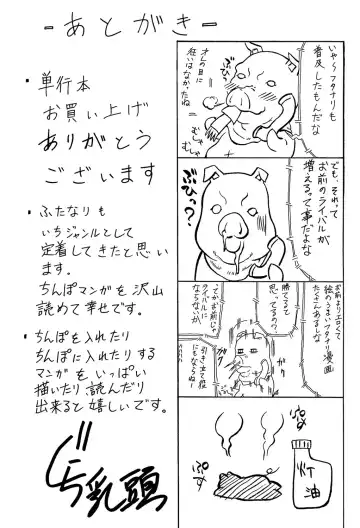 -あとがき-
・単行本
お買い上げ
ありがとう
ございます
・ふたなりも
いちジャンルとして
定着してきたと思い
ます。
ちんぽマンガを沢山
読めて幸せです。
・ちんぽを入れたり
ちんぽに入れたりする
マンガをいっぱい
描いたり、読んだり
出来ると嬉しいです。
乳頭
いや〜フタナリも
普及したもんだな
オレの目に
狂いはなかったね
むしゃ
むしゃ
でも、それって
お前のライバルが
増えるって事だよな
ぶひっ?
お前よりエロくて
絵のうまいフタナリ漫画
たくさんあるしな
勝てるって
思ってるの?
てかお前じゃ
ライバルに
ならないか
引き立て役
にもならねー
ぷす
ぷす
灯油